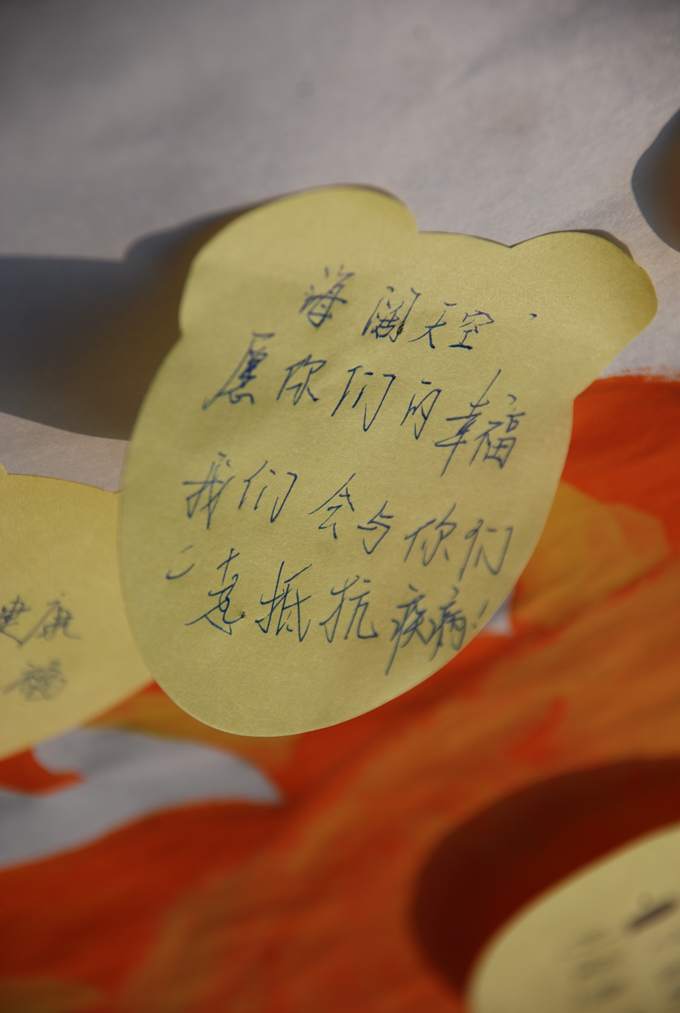 海阔天空，
愿你们的幸福
我们会与你们
一直抵抗疾病！
健康
福